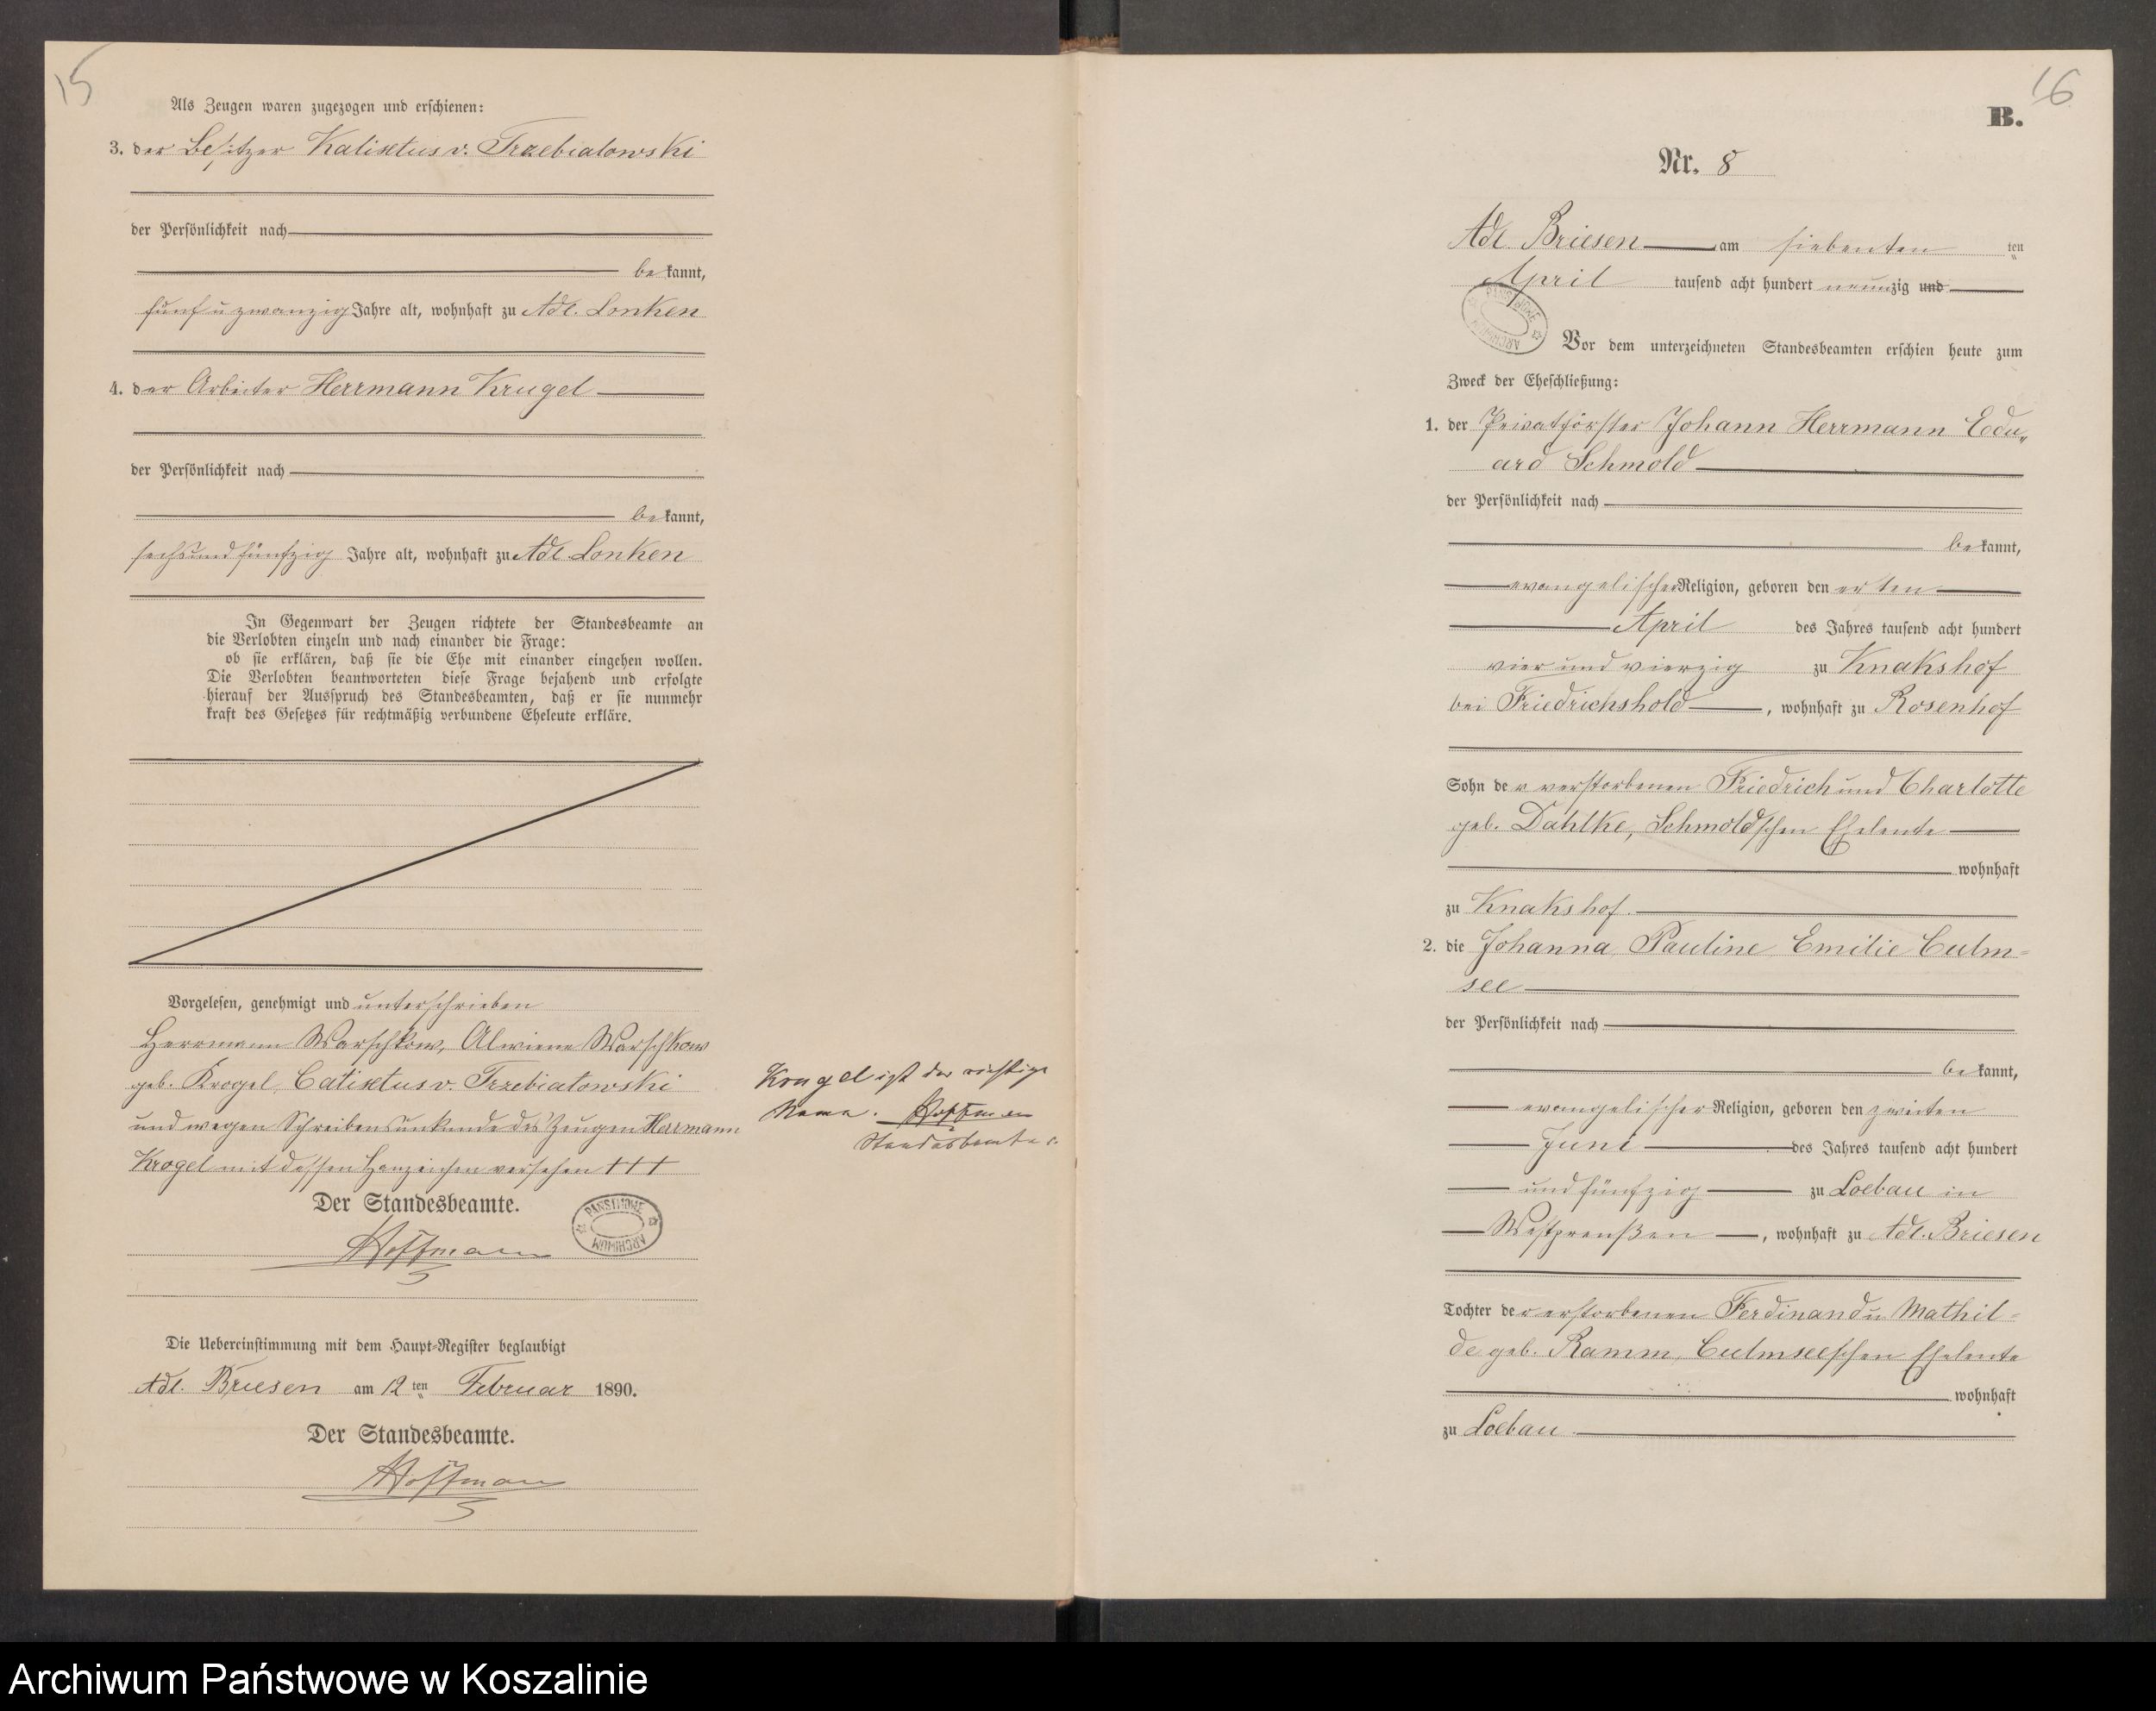 15
Als Zeugen waren zugezogen und erschienen:
3. der Besitzer Kalixtus v. Trzebiatowski
der Persönlichkeit nach
bekannt,
fünf u zwanzig Jahre alt, wohnhaft zu Adl. Lonken
4. der Arbeiter Herrmann Krugel
der Persönlichkeit nach
bekannt,
sechsundfünfzig Jahre alt, wohnhaft zu Adl Lonken
In Gegenwart der Zeugen richtete der Standesbeamte an
die Verlobten einzeln und nach einander die Frage:
ob sie erklären, daß sie die Ehe mit einander eingehen wollen.
Die Verlobten beantworteten diese Frage bejahend und erfolgte
hierauf der Ausspruch des Standesbeamten, daß er sie nunmehr
kraft des Gesetzes für rechtmäßig verbundene Eheleute erkläre.
Vorgelesen, genehmigt und unterschrieben
Herrmann Warschkow, Alwiene Warschkow
geb. Krogel, Calixtus v. Trzebiatowski
und wegen Schreibensunkunde des Zeugen Herrmann
Krogel mit dessen Hanzeichen versehen +++
Krugel ist der richtige
Name. Hoffmann
Standesbeamter
Der Standesbeamte.
PANSTWOWE ARCHIWUM
Hoffmann
Die Uebereinstimmung mit dem Haupt-Register beglaubigt
Adl. Briesen am 12 ten Februar 1890.
Der Standesbeamte.
Hoffmann
16
B.
Nr. 8
Adl. Briesen am siebenten ten
April tausend acht hundert neunzig und
PANSTWOWE ARCHIWUM
Vor dem unterzeichneten Standesbeamten erschien heute zum
Zweck der Eheschließung:
1. der Privatförster Johann Herrmann Edu„
ard Schmold
der Persönlichkeit nach
bekannt,
evangelischer Religion, geboren den ersten
April des Jahres tausend acht hundert
vier und vierzig zu Knakshof
bei Friedrichshold, wohnhaft zu Rosenhof
Sohn der verstorbenen Friedrich und Charlotte
geb. Dahlke, Schmoldschen Eheleute
wohnhaft
zu Knakshof.
2. die Johanna Pauline Emilie Culm=
see
der Persönlichkeit nach
bekannt,
evangelischer Religion, geboren den zweiten
Juni des Jahres tausend acht hundert
und fünfzig zu Loebau in
Westpreußen, wohnhaft zu Adl. Briesen
Tochter der verstorbenen Ferdinand u Mathil=
de geb. Ramm, Culmseeschen Eheleute
wohnhaft
zu Loebau.
Archiwum Państwowe w Koszalinie